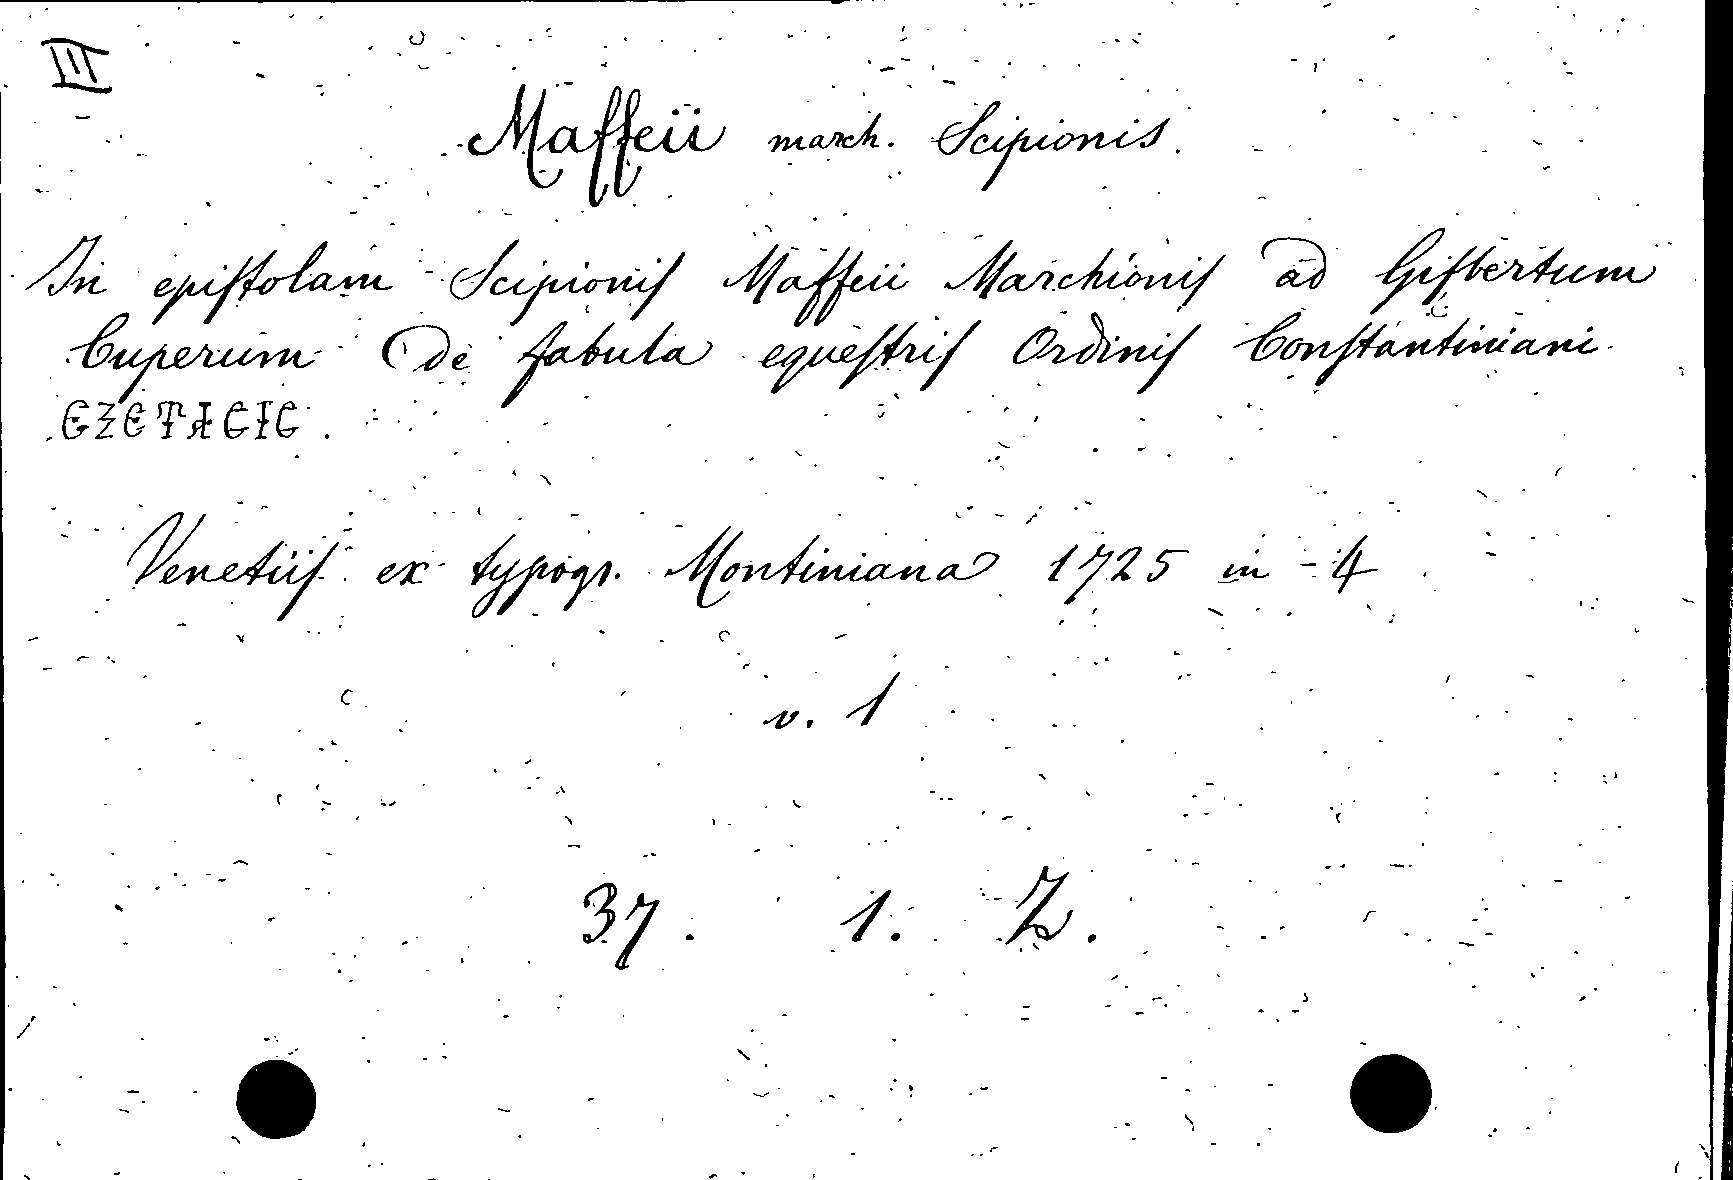 III
Maffeii march. Scipionis.
In epiſtolam Scipioniſ Maffeii Marchioniſ ad Giſbertum
Cuperum de fabula equeſtriſ Ordiniſ Conſtantiniani
ЄΖЄΤΑϹΙϹ.
Venetiiſ ex typogr. Montiniana 1725 in-4
v. 1
37. 1. Z.